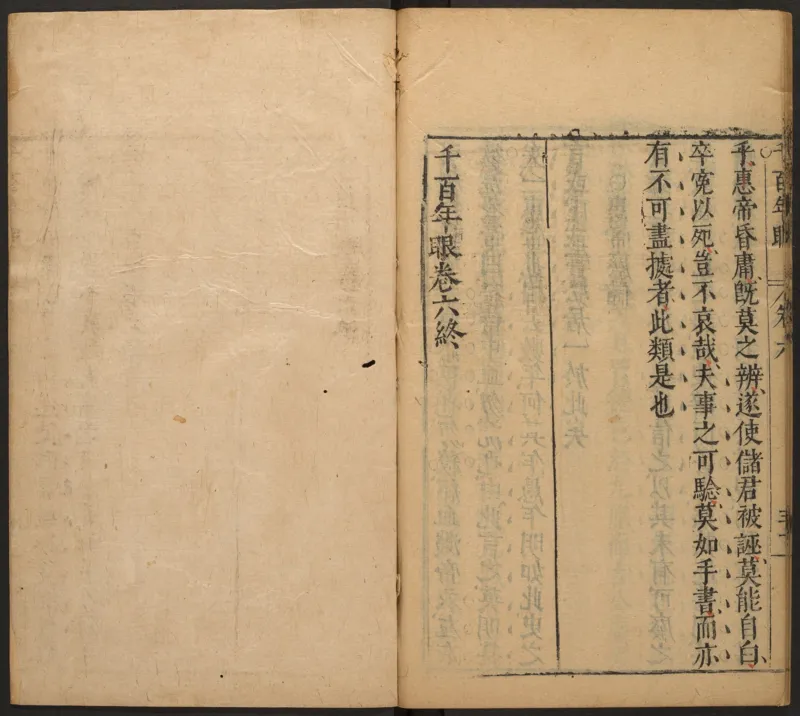 千百年眼
卷六
乎惠帝昏庸既莫之辨遂使儲君被誣莫能自白
卒寃以死豈不哀哉夫事之可驗莫如手書而亦
有不可盡據者此類是也
千百年眼卷六終